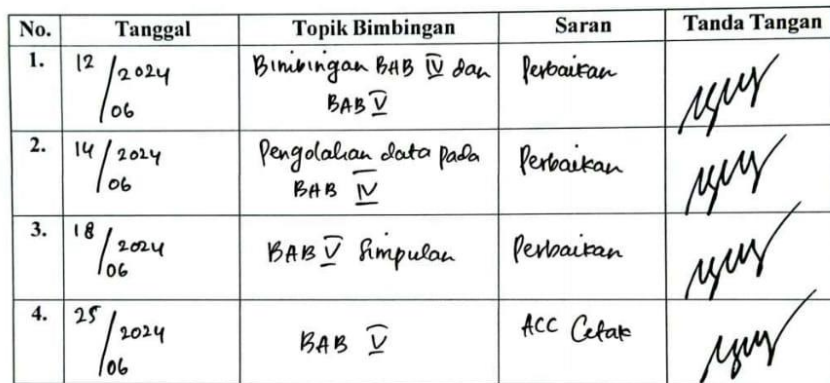 No. Tanggal Topik Bimbingan Saran Tanda Tangan
1. 12/06/2024 Bimbingan BAB IV dan Perbaikan
BAB V
2. 14/06/2024 Pengolahan data pada Perbaikan
BAB IV
3. 18/06/2024 BAB V Simpulan Perbaikan
4. 25/06/2024 BAB V ACC Cetak